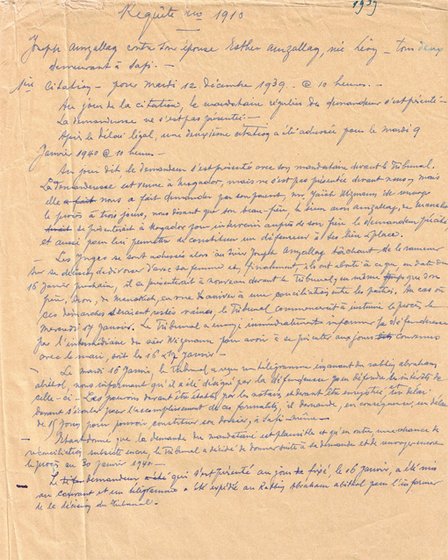 1939
Requête nos 1910
Joseph Amzallag contre son épouse Esther Amzallag, née Lévy - tous deux
demeurant à Safi. -
1ère Citation - pour mardi 12 décembre 1939. @ 10 heures. -
Au jour de la citation, le mandataire régulier du demandeur s'est présenté -
La demanderesse ne s'est pas présentée. -
Après le délai légal, une deuxième citation a été adressée pour le mardi 9
Janvier 1940 @ 10 heures -
Au jour dit, le demandeur s'est présenté avec son mandataire devant le Tribunal.
La demanderesse est venue à Mogador, mais ne s'est pas présentée devant nous, mais
elle nous a fait demander par son parent, Mr
le procès à trois jours, nous disant que son beau-frère, le sieur Amzallag, de Marrakech
se présenterait à Mogador pour intervenir auprès de son frère le demandeur précité
et aussi pour lui permettre de constituer un défenseur à ses lieu & place.
Les Juges se sont adressés alors au sieur Joseph Amzallag tâchant de le ramener
sur sa décision de divorcer d'avec sa femme et, finalement, ils ont abouti à ce que en date du
16 janvier prochain, il se présenterait à nouveau devant le Tribunal en même que son
frère, de Marrakech, en vue d'arriver à une conciliation entre les parties. En cas où
ses démarches seraient restées vaines, le Tribunal commencerait à instruire le procès le
mercredi 17 janvier. Le Tribunal a envoyé immédiatement informer la défenderesse
par l'intermédiaire du sieur Wizmann pour avoir à se présenter aux jours convenus
avec le mari, soit les 16 & 17 janvier -
- Le mardi 16 janvier, le Tribunal a reçu un télégramme émanant du rabbin Abraham
Abitbol, nous informant qu'il a été désigné par la défenderesse pour défendre les intérêts de
celle-ci. Les pouvoirs devant être établis par les notaires et devant être enregistrés, un délai
devant s'écouler pour l'accomplissement de ces formalités, il demande, en conséquence, un délai
de 15 jours pour pouvoir constituer son dossier, à Safi
- Etant donné que la demande du mandataire est plausible et qu'en outre, une chance de
réconciliation subsiste encore, le Tribunal a décidé de donner suite à sa demande et de renvoyer
le procès au 30 janvier 1940 -
- Le demandeur qui s'est présenté au jour fixé, le 16 janvier, a été mis
au courant et un télégramme a été expédié au Rabbin Abraham Abitbol pour l'informer
de la décision du Tribunal. -